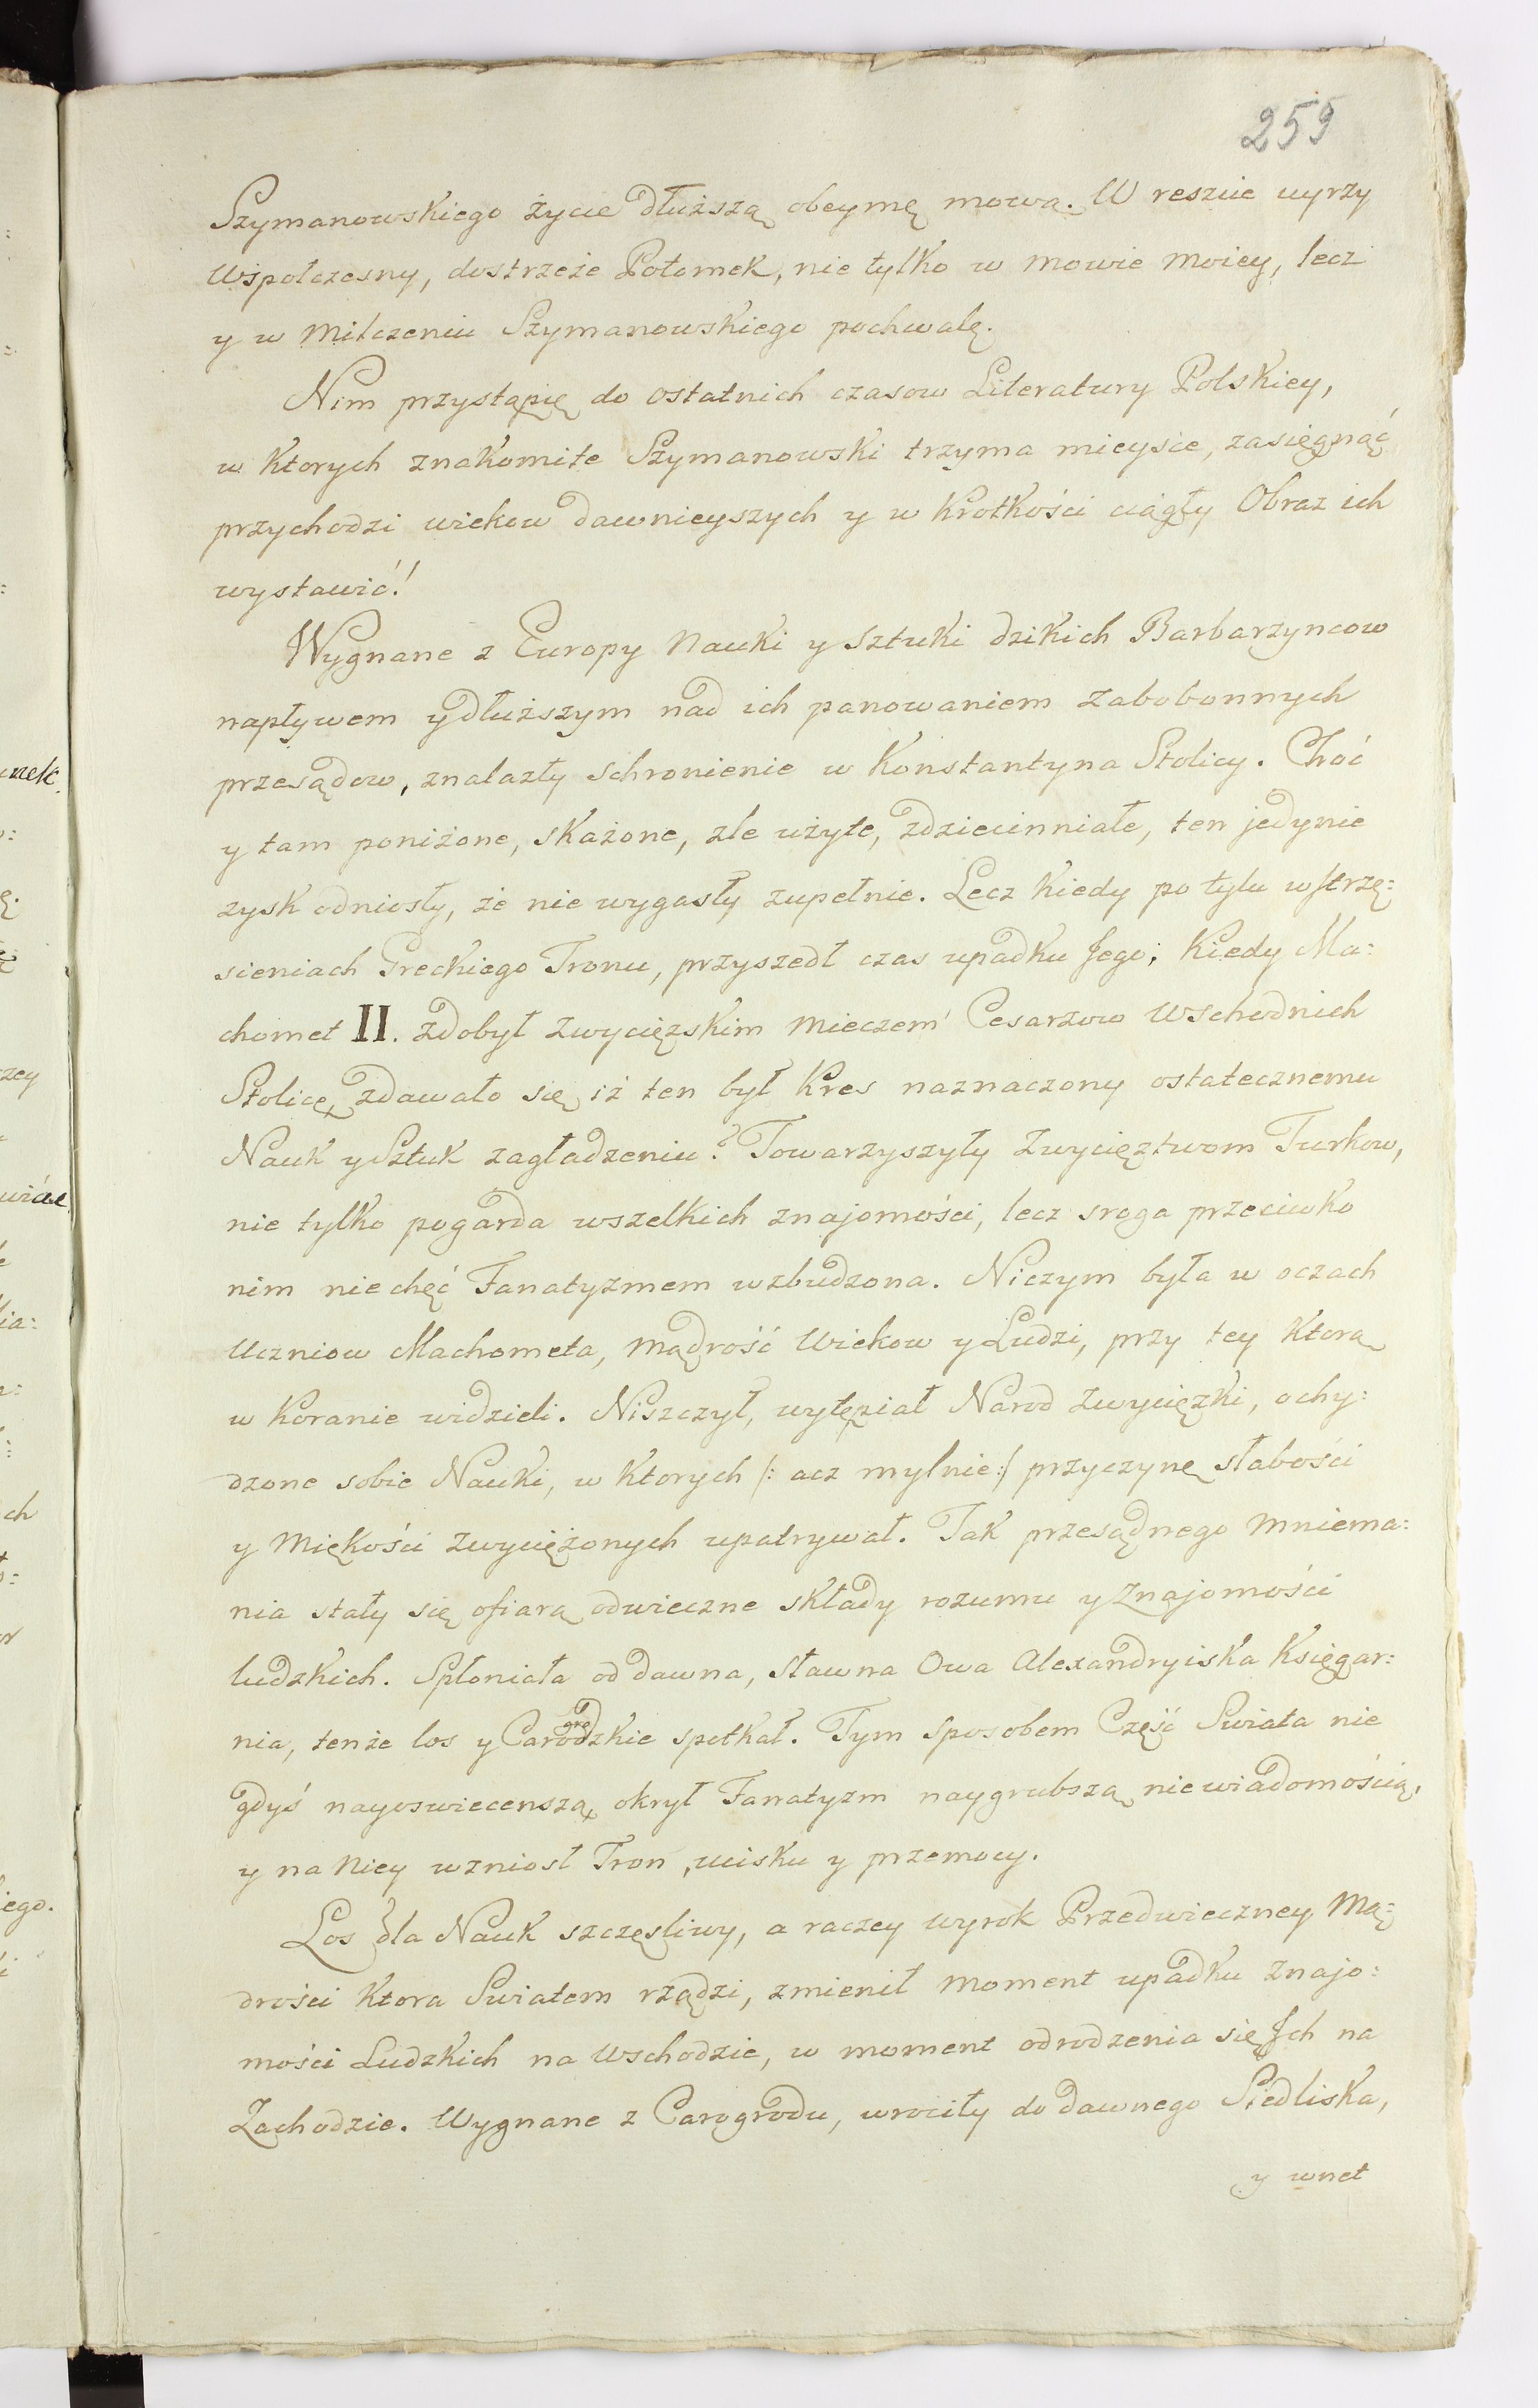 259
Szymanowskiego życie dłuższą obeymę mową. W reszcie uyrzy
Wspołczesny, dostrzeże Potomek, nie tylko w mowie moiey, lecz
y w milczeniu Szymanowskiego pochwałę.
Nim przystąpię do ostatnich czasow Literatury Polskiey,
w ktorych znakomite Szymanowski trzyma mieysce, zasięgnąć
przychodzi wiekow dawnieyszych y w krotkości ciągły Obraz ich
wystawić!
Wygnane z Europy Nauki y Sztuki dzikich Barbarzyncow
napływem y dłuższym nad ich panowaniem zabobonnych
przesądow, znalazły schronienie w Konstantyna Stolicy. Choć
y tam poniżone, skażone, zle użyte, zdziecinniałe, ten jedynie
zysk odniosły, że nie wygasły zupełnie. Lecz kiedy po tylu wstrzę:
sieniach Greckiego Tronu, przyszedł czas upadku Jego; kiedy Ma:
chomet II. zdobył zwycięzskim mieczem Cesarzow Wschodnich
Stolicę, zdawało się iż ten był kres naznaczony ostatecznemu
Nauk y Sztuk zagładzeniu? Towarzyszyły zwycięztwom Turkow,
nie tylko pogarda wszelkich znajomości, lecz sroga przeciwko
nim niechęć Fanatyzmem wzbudzona. Niczym była w oczach
Uczniow Machometa, mądrość Wiekow y Ludzi, przy tey ktorą
w Koranie widzieli. Niszczył, wytępiał Narod zwycięzki, ochy:
dzone sobie Nauki, w ktorych /: acz mylnie :/ przyczynę słabości
y miękości zwyciężonych upatrywał. Tak przesądnego mniema:
nia stały się ofiarą odwieczne składy rozumu y znajomości
ludzkich. Spłoniała od dawna, sławna Owa Alexandryiska Księgar:
nia, tenże los y Carogrodzkie spotkał. Tym sposobem Część Swiata nie
gdyś nayoswiecenszą, okrył Fanatyzm naygrubszą niewiadomością,
y na niey wzniosł Tron, ucisku y przemocy.
Los dla Nauk szczęsliwy, a raczey wyrok Przedwieczney Mą:
drości ktora Swiatem rządzi, zmienił moment upadku znajo:
mości Ludzkich na Wschodzie, w moment odrodzenia się Ich na
Zachodzie. Wygnane z Carogrodu, wrociły do dawnego Siedliska,
y wnet